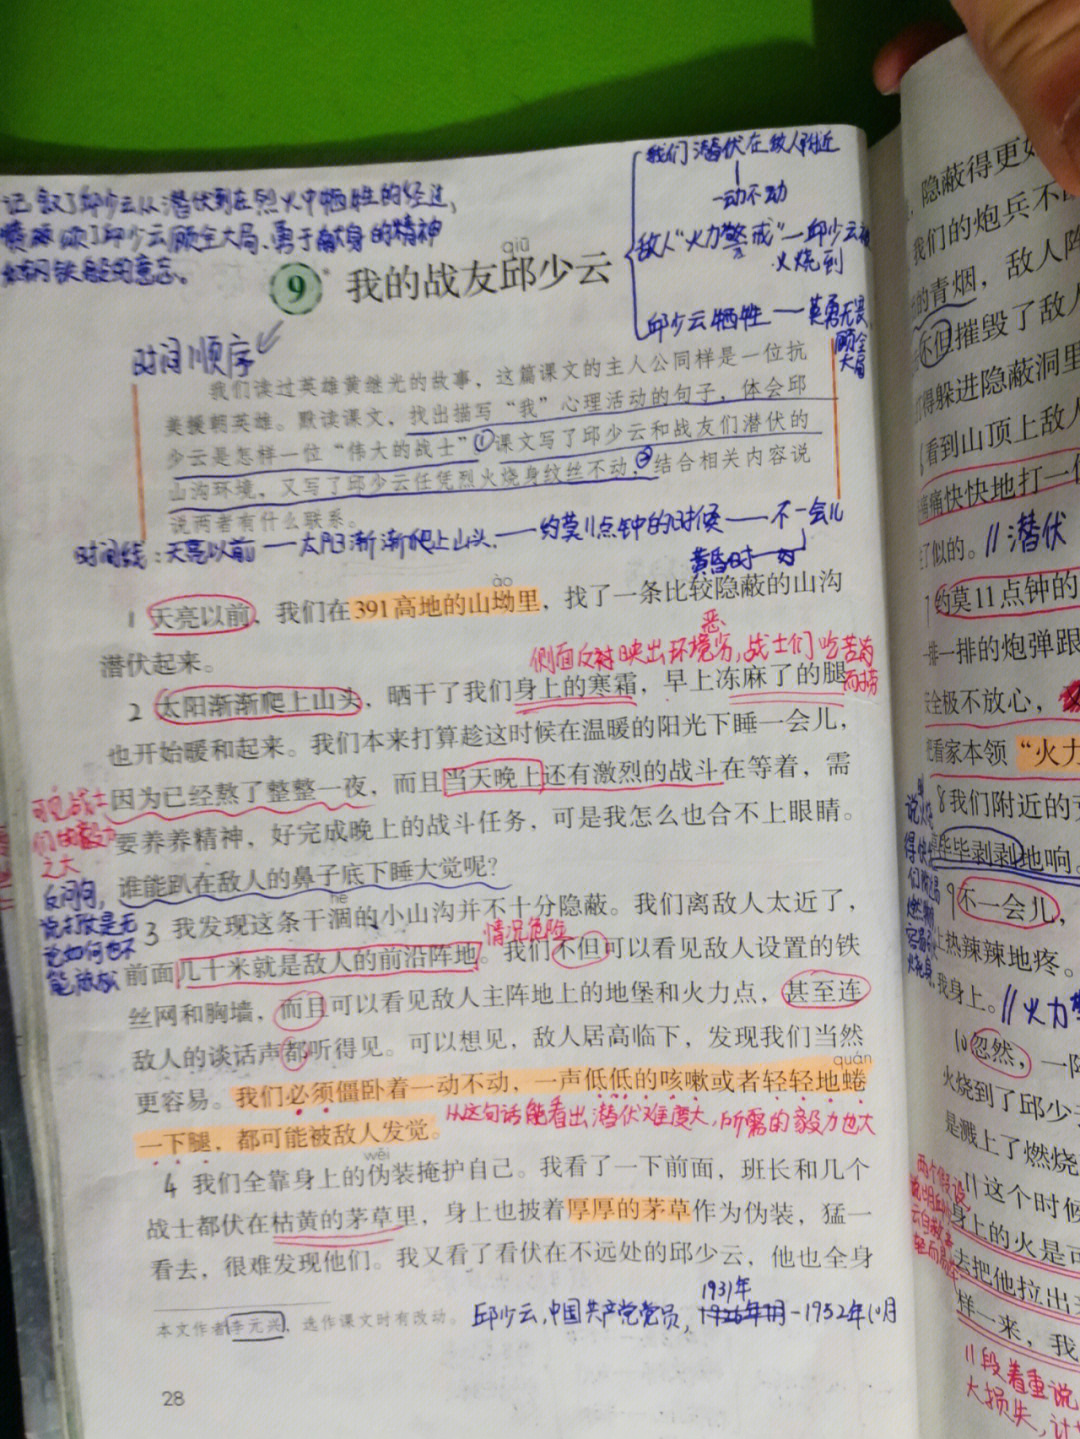 记叙了邱少云从潜伏到在烈火中牺牲的经过,
颂了邱少云顾全大局、勇于献身的精神
钢铁般的意志。
我们潜伏在敌人附近
一动不动
敌人“火力警戒”—邱少云被
火烧到
邱少云牺牲——英勇无畏,
顾全
大局
qiū
9 我的战友邱少云
时间顺序
我们读过英雄黄继光的故事,这篇课文的主人公同样是一位抗
美援朝英雄。默读课文,找出描写“我”心理活动的句子,体会邱
少云是怎样一位“伟大的战士”①课文写了邱少云和战友们潜伏的
山沟环境,又写了邱少云任凭烈火烧身纹丝不动,②结合相关内容说
说两者有什么联系。
时间线:天亮以前——太阳渐渐爬上山头——约莫11点钟的时候——不一会儿
黄昏时
ào
1 天亮以前,我们在391高地的山坳里,找了一条比较隐蔽的山沟
潜伏起来。
侧面反衬映出环境恶劣,战士们吃苦耐
劳
2 太阳渐渐爬上山头,晒干了我们身上的寒霜,早上冻麻了的腿
也开始暖和起来。我们本来打算趁这时候在温暖的阳光下睡一会儿,
因为已经熬了整整一夜,而且当天晚上还有激烈的战斗在等着,需
要养养精神,好完成晚上的战斗任务,可是我怎么也合不上眼睛。
谁能趴在敌人的鼻子底下睡大觉呢?
可见战士
们的毅力
之大
反问句,
说打敌是无
论如何也不
能放松
hé
3 我发现这条干涸的小山沟并不十分隐蔽。我们离敌人太近了,
情况危险
前面几十米就是敌人的前沿阵地。我们不但可以看见敌人设置的铁
丝网和胸墙,而且可以看见敌人主阵地上的地堡和火力点,甚至连
敌人的谈话声都听得见。可以想见,敌人居高临下,发现我们当然
quán
更容易。我们必须僵卧着一动不动,一声低低的咳嗽或者轻轻地蜷
一下腿,都可能被敌人发觉。
从这句话能看出潜伏难度大,所需的毅力也大
wěi
4 我们全靠身上的伪装掩护自己。我看了一下前面,班长和几个
战士都伏在枯黄的茅草里,身上也披着厚厚的茅草作为伪装,猛一
看去,很难发现他们。我又看了看伏在不远处的邱少云,他也全身
本文作者李元兴,选作课文时有改动。
邱少云,中国共产党党员,1931年-1952年10月
28
隐蔽得更好
我们的炮兵不
的青烟,敌人阵
不但摧毁了敌人
得躲进隐蔽洞里
看到山顶上敌人
痛痛快快地打一
了似的。//潜伏
约莫11点钟的
一排一排的炮弹跟
全极不放心,
把看家本领“火力
8 我们附近的
毕毕剥剥地响
9 不一会儿,
上热辣辣地疼。
我身上。//火力警
10 忽然,一阵
火烧到了邱少
是溅上了燃烧
11 这个时候
身上的火是可
去把他拉出
样一来,我
11段着重说
大损失,计